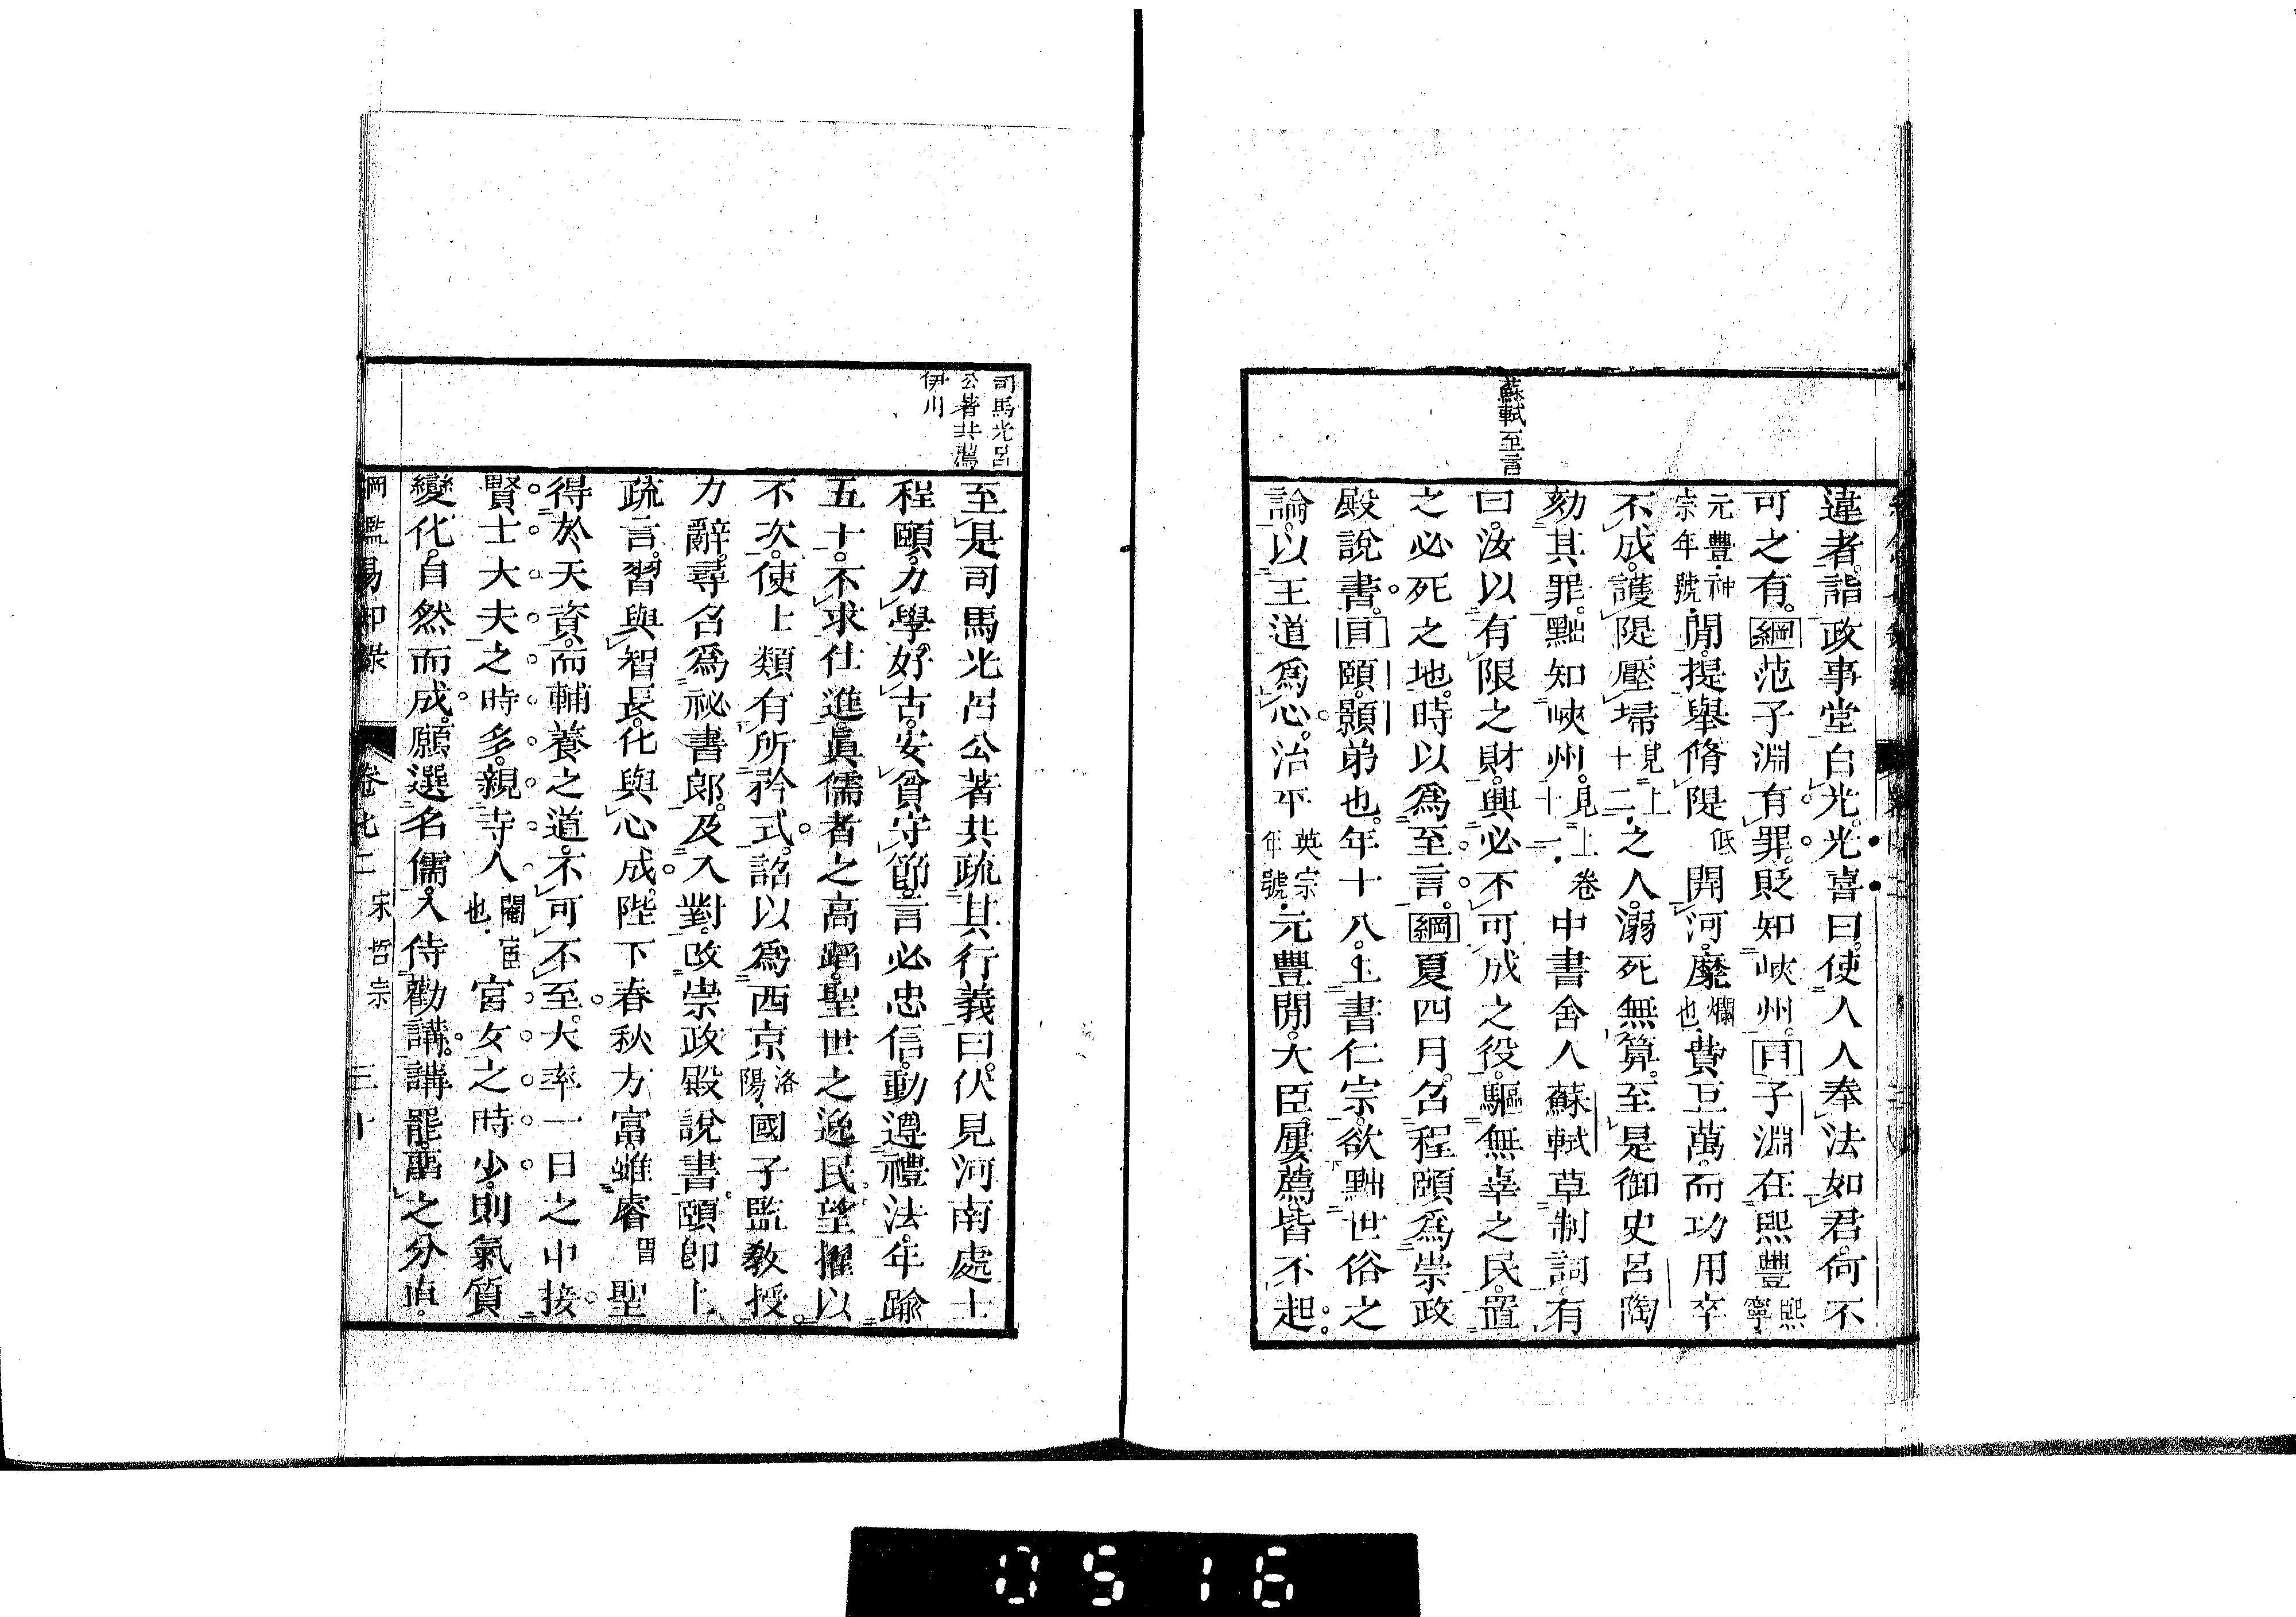 蘇軾至言
違者。詣政事堂白光。光喜曰。使人人奉法如君。何不
可之有。綱范子淵有罪。貶知峽州。目子淵在熙豐熙寧・
元豐・神宗年號・閒。提舉脩隄低開河。糜爛也・費巨萬。而功用卒
不成。護隄壓埽見上十二・之人。溺死無算。至是御史呂陶
劾其罪。黜知峽州。見上卷十一・中書舍人蘇軾草制詞。有
曰。汝以有限之財。興必不可成之役。驅無辜之民。置
之必死之地。時以爲至言。綱夏四月。召程頤爲崇政
殿說書。目頤。顥弟也。年十八。上書仁宗。欲黜世俗之
論。以王道爲心。治平英宗年號・元豐閒。大臣屢薦。皆不起。
司馬光呂
公著共薦
伊川
至是司馬光呂公著共疏其行義曰。伏見河南處士
程頤。力學好古。安貧守節。言必忠信。動遵禮法。年踰
五十。不求仕進。眞儒者之高蹈。聖世之逸民。望擢以
不次。使士類有所矜式。詔以爲西京洛陽・國子監敎授。
力辭。尋召爲祕書郎。及入對。改崇政殿說書。頤卽上
疏言。習與智長。化與心成。陛下春秋方富。雖睿聖
得於天資。而輔養之道。不可不至。大率一日之中。接
賢士大夫之時多。親寺人閹宦也・宮女之時少。則氣質
變化。自然而成。願選名儒。入侍勸講。講罷。畱之分直。
綱鑑易知錄 卷七二 宋哲宗 三十